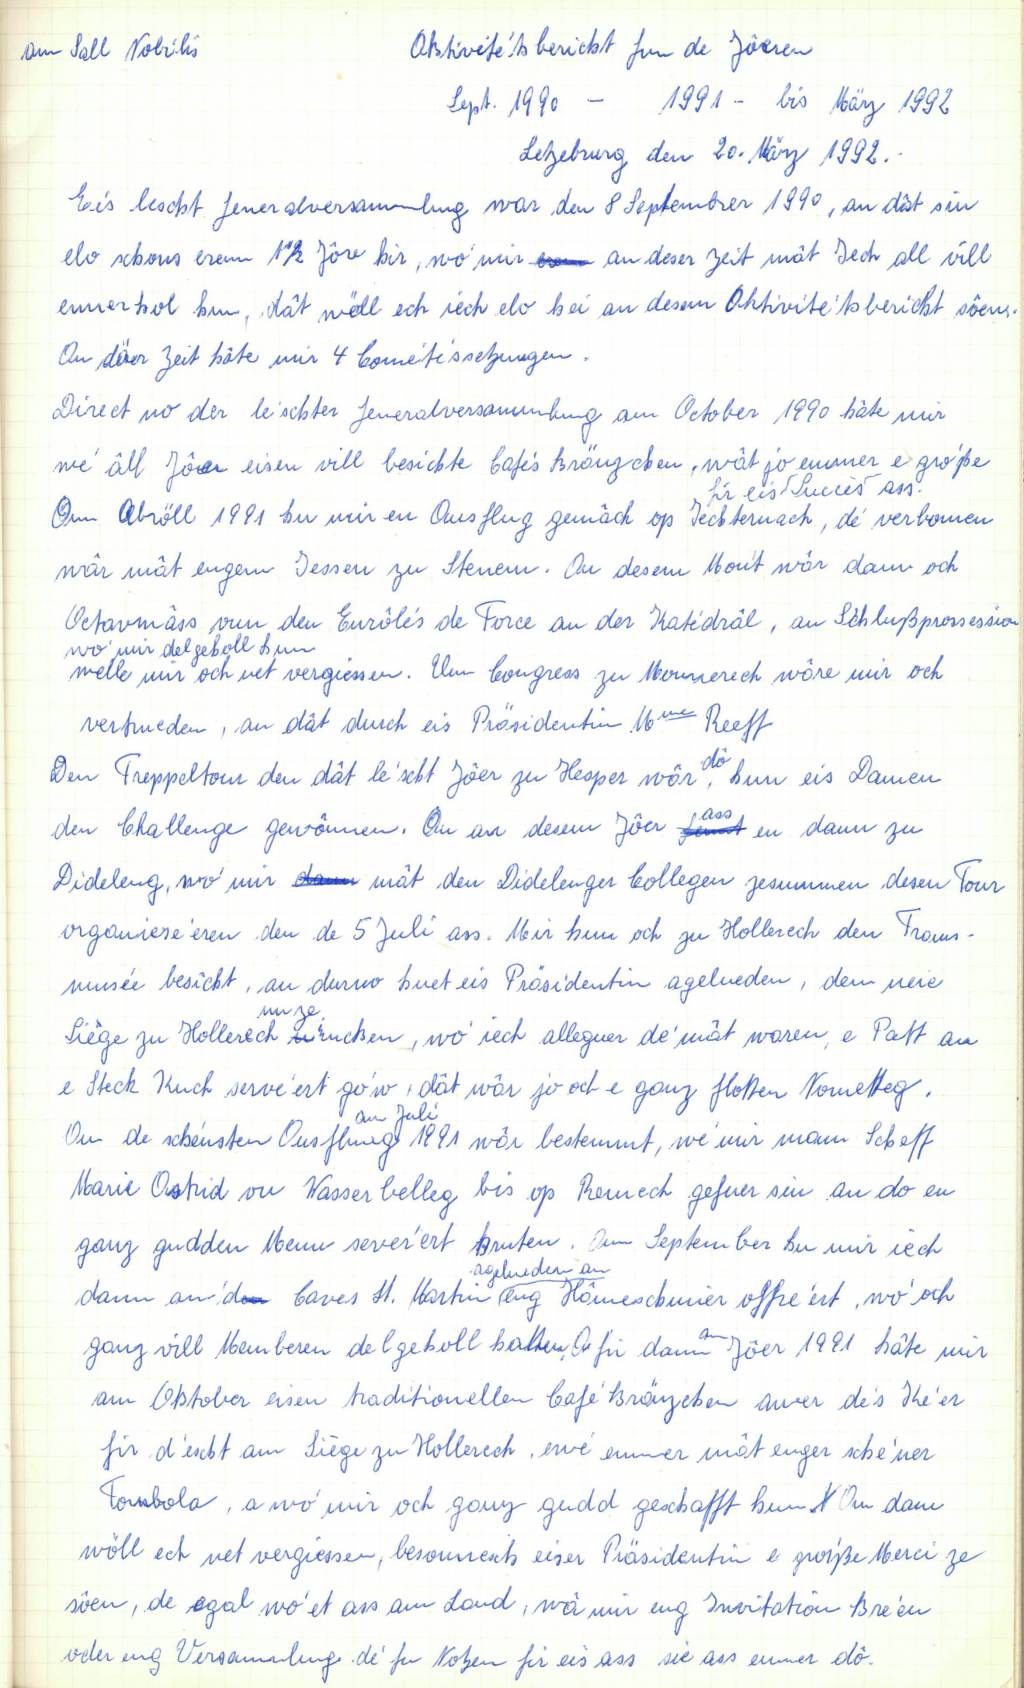 am Sall Nobilis
Aktivité'tsbericht fun de Jôeren
Sept. 1990 - 1991 - bis März 1992
Letzeburg den 20. März 1992.-
Eis lescht Jeneralversammlung war den 8 September 1990, an dât sin
elo schons erem 1 1/2 Jôre hir, wó mir an deser Zeit mât Iech all vill
ennerhol hun, dât wëll ech iech elo hei an desem Aktivité'tsbericht sôen.
An dëer Zeit hâte mir 4 Comité'ssetzungen.
Direct no der leschter Jeneralversammlung am October 1990 hâte mir
wé âll Jôer eisen vill besichte Cafés Kränzchen, wât jo emmer e große
fir eis Succès ass.
Am Abrëll 1991 hu mir en Ausflug gemâch op Iechternach, dé verbonnen
wâr mât engem Iessen zu Stenem. An desem Mont wâr dann och
Octavmäss vun den Eurôlés de Force an der Katédrâl, an Schlußprossession
wo mir delgeholl hun
welle mir och net vergiessen. Um Congress zu Monnerech wôre mir och
vertrueden, an dât durch eis Präsidentin Mme Reeff
Den Treppeltour den dât lé'scht Jôer zu Hesper wôr, dô hun eis Damen
den Challenge gewônnen. An an desem Jôer ass en dann zu
Dideleng, wó mir mât den Didelenger Collegen zesummen desen Tour
organiesé'eren den de 5 Juli ass. Mir hun och zu Hollerech den Trams-
musée besicht, an durno huet eis Präsidentin agelueden, dem neie
Siège zu Hollerech nu ze kucken, wó iech alleguer dé mât waren, e Patt an
e Steck Kuch servé'ert gó'w, dât wâr jo och e ganz flotten Nometteg.
An de schénsten Ausflug am Juli 1991 wôr bestemmt, wé mir mam Scheff
Marie Astrid vu Wasserbelleg bis op Remech gefuer sin an do en
ganz gudden Menu severé'ert kruten. Am September hu mir iech
dann an Caves St. Martin agelueden an eng Hâmeschmier offré'ert, wó och
ganz vill Memberen delgeholl hatten. A fir dann am Jôer 1991 hâte mir
am Oktober eisen traditionellen Café Kränzchen awer dés Ké'er
fir d'éscht am Siège zu Hollerech, ewé emmer mât enger schéner
Tombola, a wó mir och ganz gudd geschafft hun. An dann
wëll ech net vergiessen, besonnesch eiser Präsidentin e große Merci ze
sôen, de egal wó et ass am Land, wâ mir eng Invitation kré'en
oder eng Versammlung dé fu Notzen fir eis ass sie ass emmer dô.